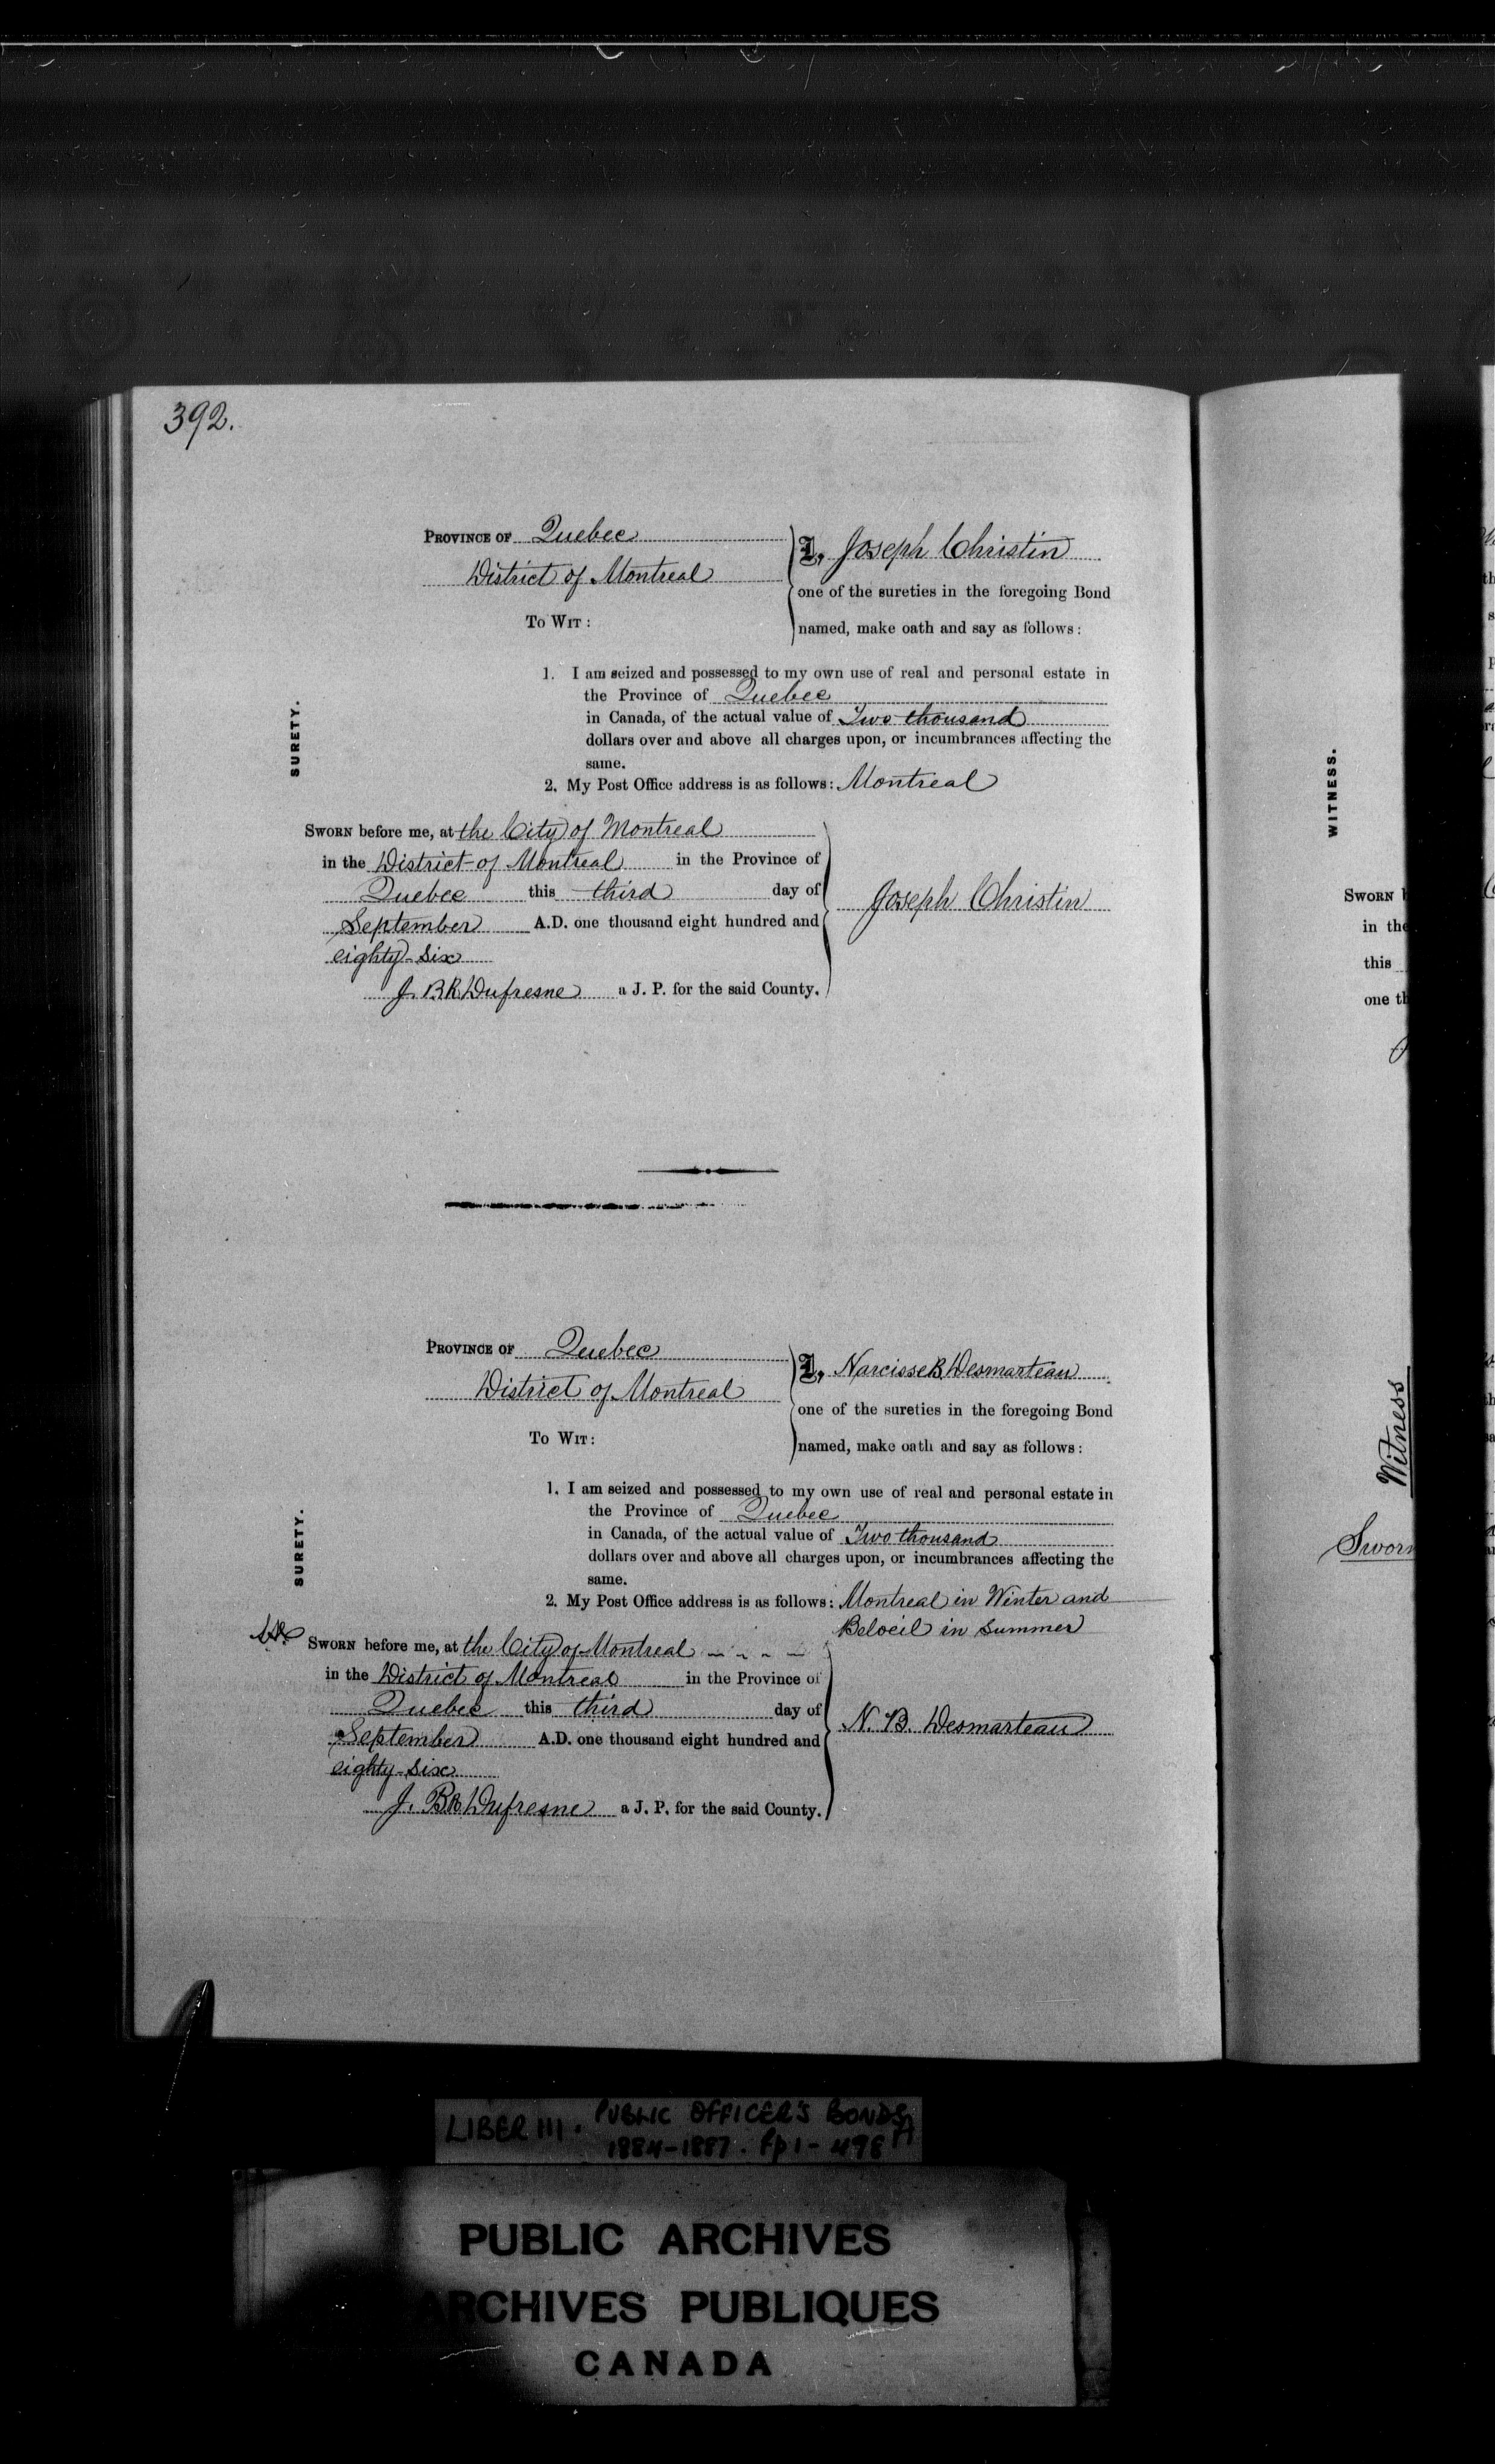 392.
PROVINCE OF Quebec
District of Montreal
TO WIT:
I, Joseph Christin
one of the sureties in the foregoing Bond
named, make oath and say as follows:
SURETY.
1. I am seized and possessed to my own use of real and personal estate in
the Province of Quebec
in Canada, of the actual value of Two thousand
dollars over and above all charges upon, or incumbrances affecting the
same.
2. My Post Office address is as follows: Montreal
SWORN before me, at the City of Montreal
in the District of Montreal in the Province of
Quebec this third day of
September A.D. one thousand eight hundred and
eighty-six
J. B R Dufresne a J. P. for the said County.
Joseph Christin
PROVINCE OF Quebec
District of Montreal
TO WIT:
I, Narcisse B Desmarteau
one of the sureties in the foregoing Bond
named, make oath and say as follows:
SURETY.
1. I am seized and possessed to my own use of real and personal estate in
the Province of Quebec
in Canada, of the actual value of Two thousand
dollars over and above all charges upon, or incumbrances affecting the
same.
2. My Post Office address is as follows: Montreal in Winter and
Beloeil in Summer
SWORN before me, at the City of Montreal
in the District of Montreal in the Province of
Quebec this third day of
September A.D. one thousand eight hundred and
eighty-six
J. B R Dufresne a J. P. for the said County.
N. B. Desmarteau
WITNESS.
SWORN
in the
this
one th
Witness
Sworn
LIBER III. PUBLIC OFFICER'S BONDS,
1884-1887. Pp 1-498
PUBLIC ARCHIVES
ARCHIVES PUBLIQUES
CANADA